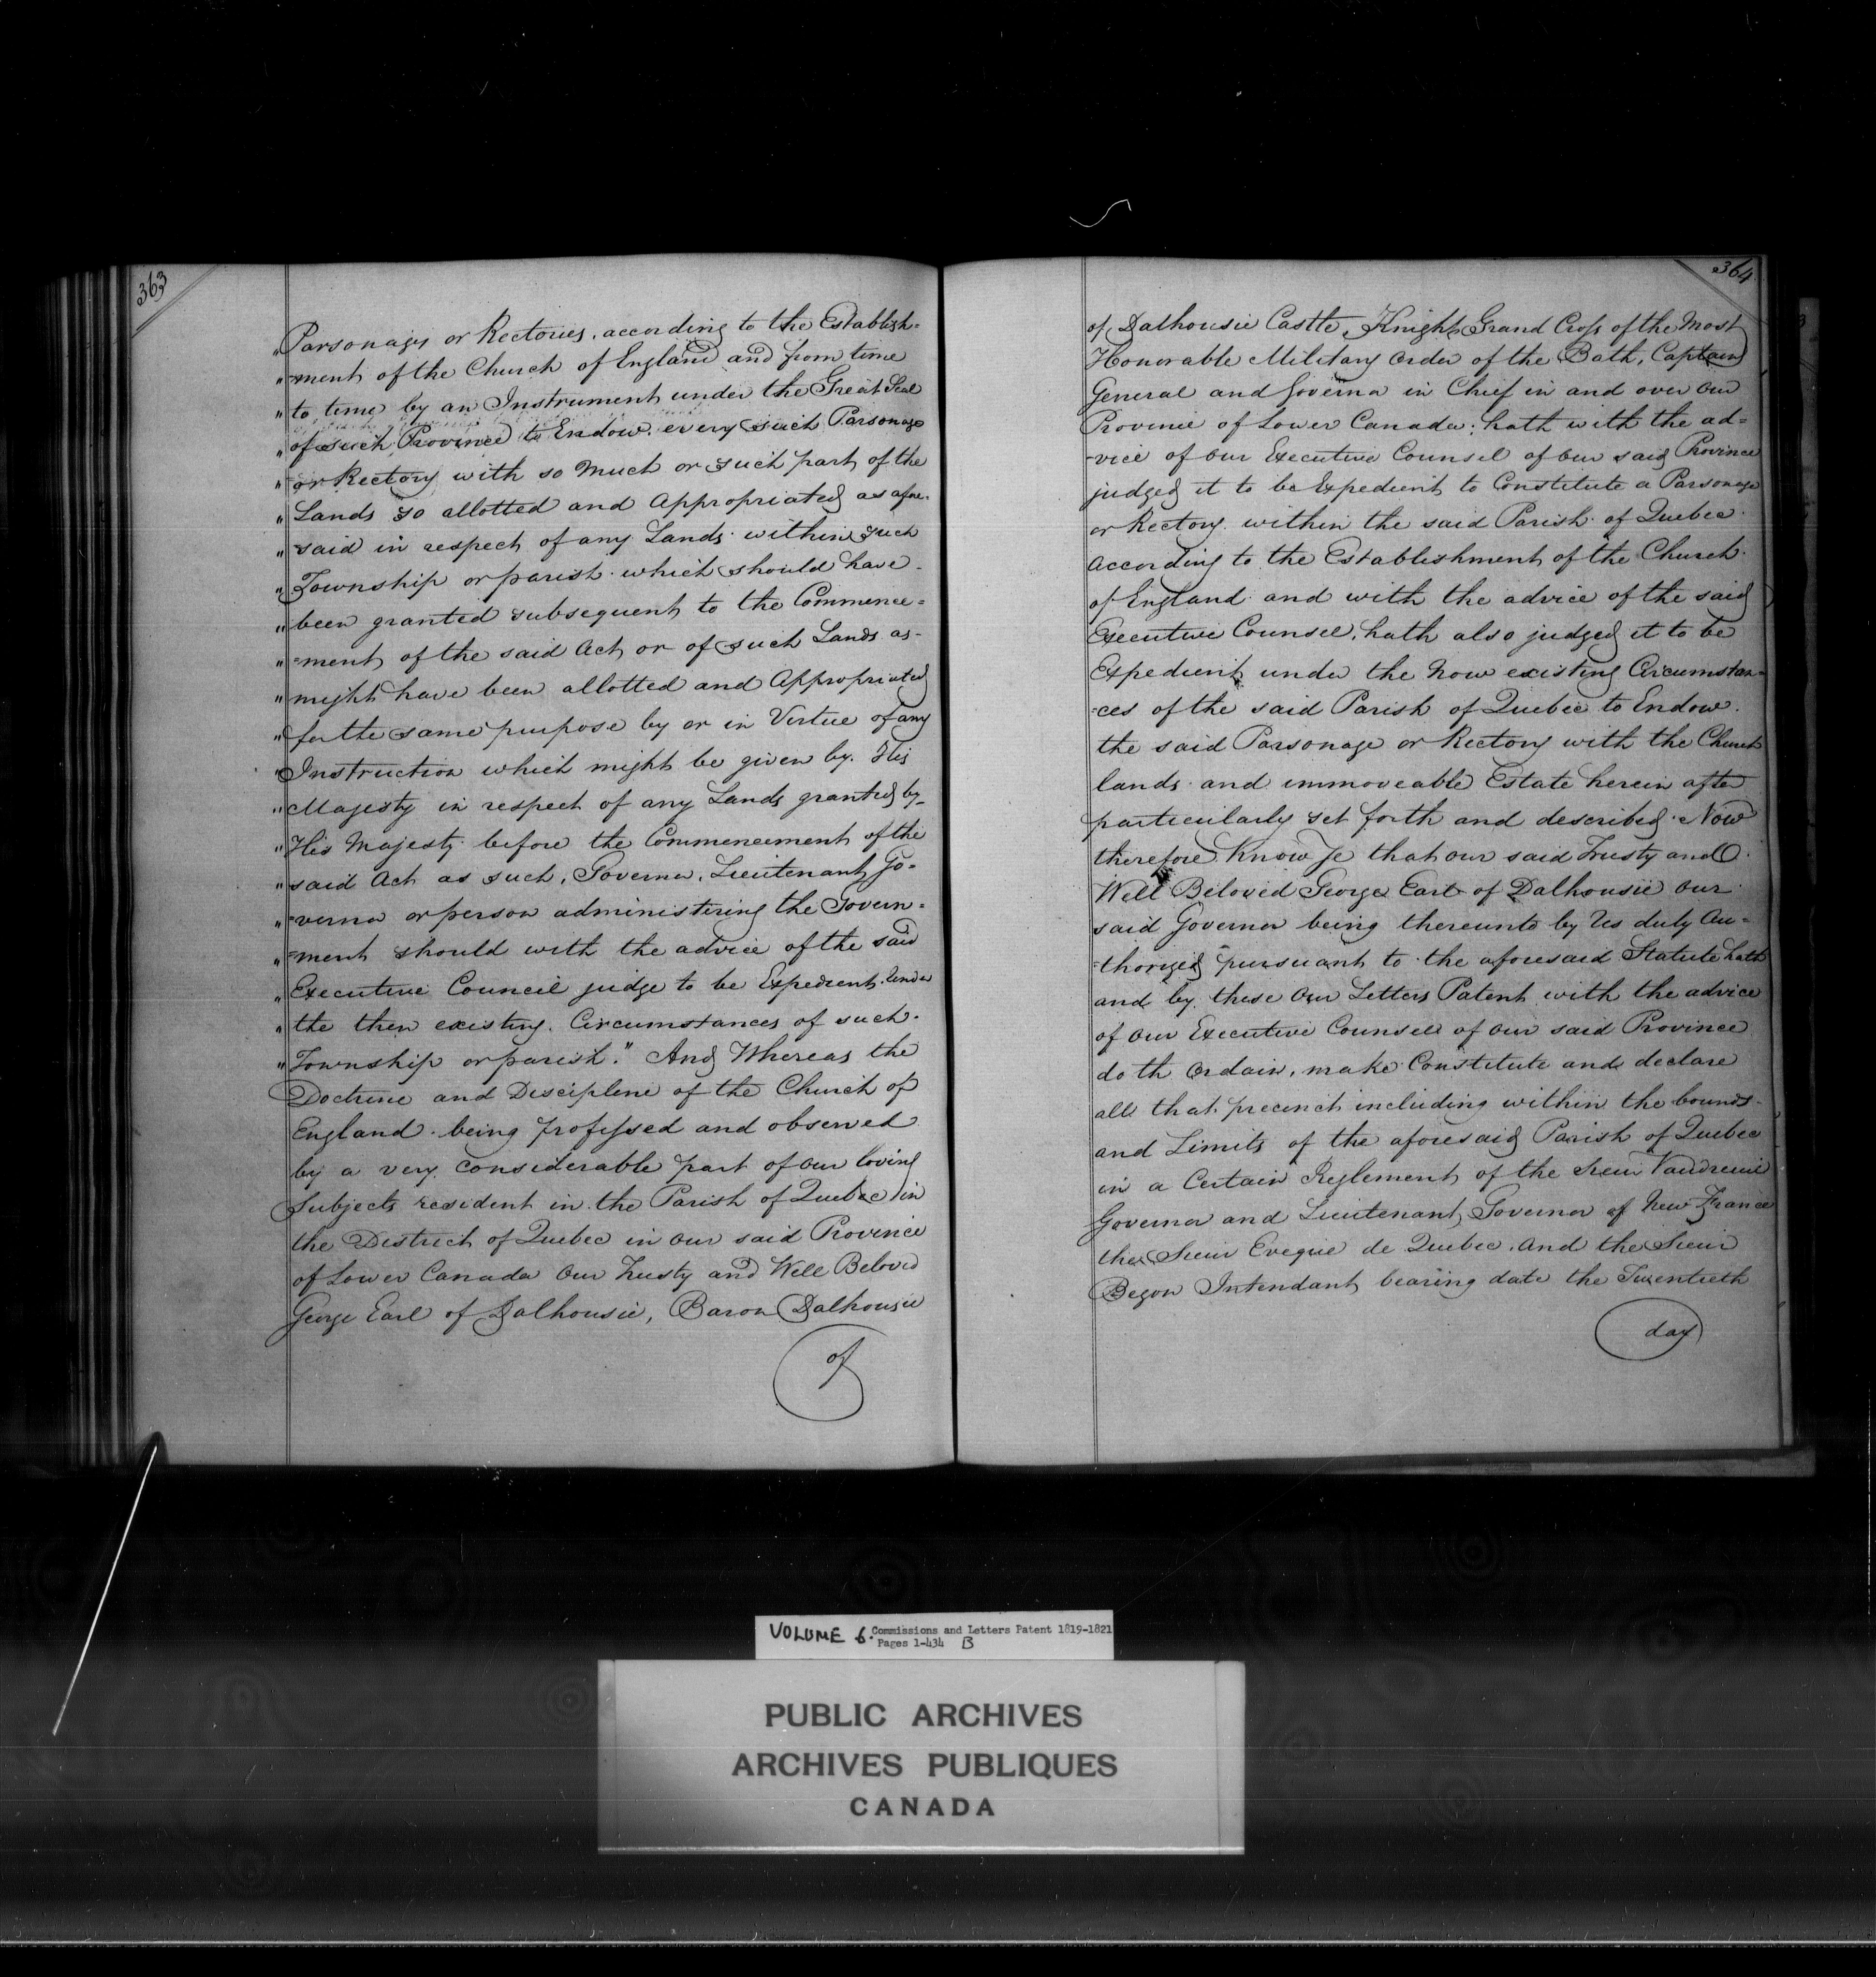 363
"Parsonages or Rectories, according to the Establish-
"-ment of the Church of England and from time
"to time by an Instrument under the Great Seal
"of such Province to Endow every such Parsonage
"or Rectory with so much or such part of the
"Lands so allotted and Appropriated as afore-
"said in respect of any Lands within such
"Township or parish which should have
"been granted subsequent to the Commence=
"=ment of the said Act or of such Lands as-
"might have been allotted and Appropriated
"for the same purpose by or in Virtue of any
"Instruction which might be given by His
"Majesty in respect of any Lands granted by-
"His Majesty before the Commencement of the
"said Act as such, Governor, Lieutenant Go-
"-vernor or person administering the Govern-
"=ment should with the advice of the said
"Executive Council judge to be Expedient Under
"the then existing Circumstances of such
"Township or parish." And Whereas the
Doctrine and Discipline of the Church of
England being professed and observed
by a very considerable part of our loving
Subjects resident in the Parish of Quebec in
the District of Quebec in our said Province
of Lower Canada Our Trusty and Well Beloved
George Earl of Dalhousie, Baron Dalhousie
of
364
of Dalhousie Castle, Knight Grand Cross of the Most
Honorable Military Order of the Bath, Captain
General and Governor in Chief in and over our
Province of Lower Canada; hath with the ad=
-vice of our Executive Counsel of our said Province
judged it to be Expedient to Constitute a Parsonage
or Rectory within the said Parish of Quebec
according to the Establishment of the Church
of England and with the advice of the said
Executive Counsel, hath also judged it to be
Expedient under the now existing Circumstan-
=ces of the said Parish of Quebec to Endow
the said Parsonage or Rectory with the Church
lands and immoveable Estate herein after
particularly set forth and described. Now
therefore Know Ye that our said Trusty and
Well Beloved George Earl of Dalhousie our
said Governor being thereunto by Us duly Au=
-thorized pursuant to the aforesaid Statute hath
and by these Our Letters Patent with the advice
of our Executive Counsel of our said Province
doth Ordain, make Constitute and declare
all that precinct including within the bounds
and Limits of the aforesaid Parish of Quebec
in a Certain Reglement of the Sieur Vaudreuil
Governor and Lieutenant Governor of New France
the Sieur Eveque de Quebec, and the Sieur
Begon Intendant bearing date the Twentieth
day
VOLUME 6. Commissions and Letters Patent 1819-1821
Pages 1-434 B
PUBLIC ARCHIVES
ARCHIVES PUBLIQUES
CANADA